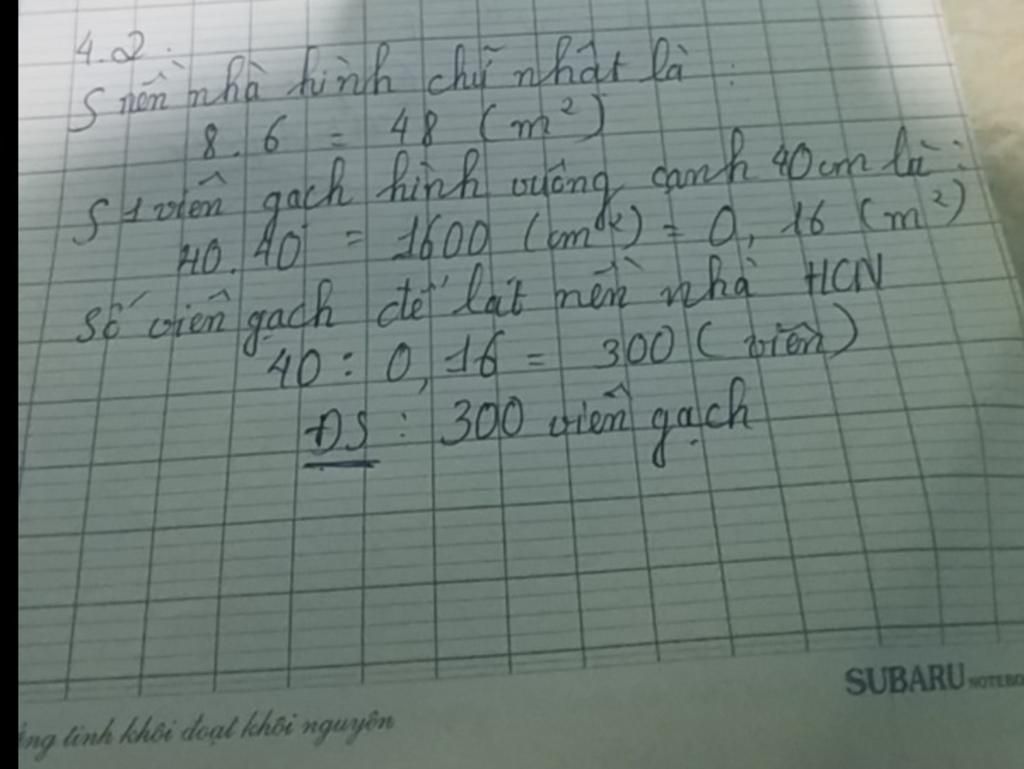 4.2.
S nền nhà hình chữ nhật là :
8.6 = 48 (m²)
S 1 viên gạch hình vuông cạnh 40cm là :
40.40 = 1600 (cm²) = 0,16 (m²)
Số viên gạch để lát nền nhà HCN
40 : 0,16 = 300 (viên)
ĐS : 300 viên gạch
SUBARU NOTEBO
ng tinh khôi đoạt khôi nguyên